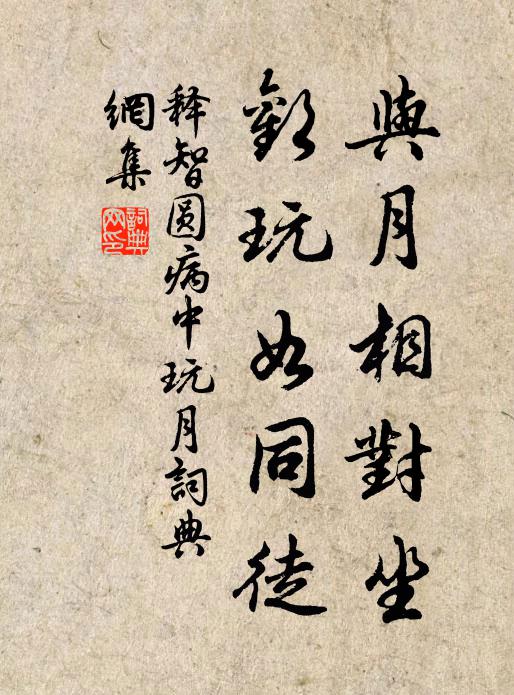 與月相對坐
歡玩如同徒
释智圆病中玩月詞典
網集
詞典網印